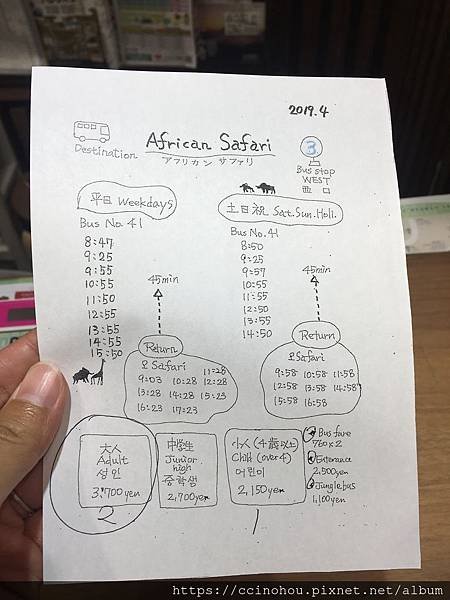 2019.4
Destination
African Safari
アフリカン サファリ
3
Bus stop
WEST
西口
平日 Weekdays
Bus No. 41
8:47
9:25
9:55
10:55
11:50
12:55
13:55
14:55
15:50
45min
Return
Safari
11:28
9:03 10:28 12:28
13:28 14:28 15:23
16:23 17:23
土日祝 Sat. Sun. Holi.
Bus No. 41
8:50
9:25
9:57
10:55
11:55
12:50
13:55
14:50
45min
Return
Safari
9:58 10:58 11:58
12:58 13:58 14:58
15:58 16:58
大人
Adult
성인
3,700yen
2
中学生
Junior
high
중학생
2,700yen
小人(4歳以上)
Child (over4)
어린이
2,150yen
1
Bus fare
760×2
Enterance
2,500yen
Junglebus
1,100yen
https://ccinohou.pixnet.net/album